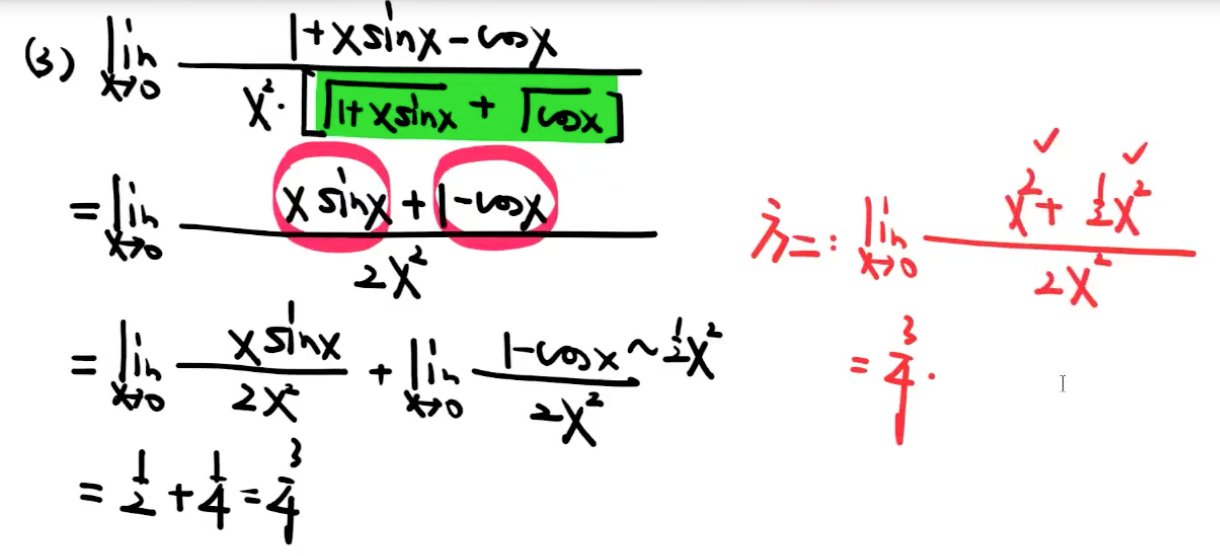 (3) lim x→0 (1+xsinx-cosx) / (x²·[√(1+xsinx) + √cosx])
= lim x→0 (xsinx + 1-cosx) / (2x²)
= lim x→0 (xsinx) / (2x²) + lim x→0 (1-cosx ~ ½x²) / (2x²)
= 1/2 + 1/4 = 3/4
方二: lim x→0 (x² + ½x²) / (2x²)
= 3/4.